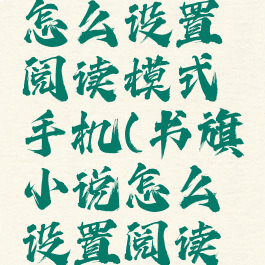 怎么设置
阅读模式
手机(书旗
小说怎么
设置阅读